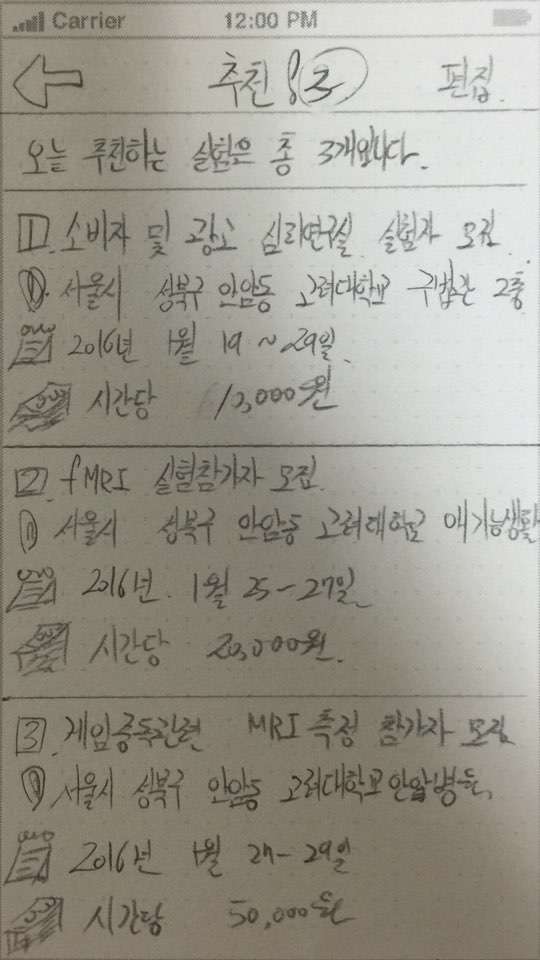 Carrier 12:00 PM
추천 3 편집
오늘 추천하는 실험은 총 3개입니다.
1 소비자 및 광고 심리연구실 실험자 모집.
서울시 성북구 안암동 고려대학교 구법관 2층
2016년 1월 19 ~ 29일.
시간당 13,000원
2 fMRI 실험참가자 모집.
서울시 성북구 안암동 고려대학교
2016년. 1월 25 - 27일
시간당 20,000원.
3 게임중독관련 MRI 측정 참가자 모집
서울시 성북구 안암동 고려대학교 안암병원.
2016년 1월 27 - 29일
시간당 50,000원